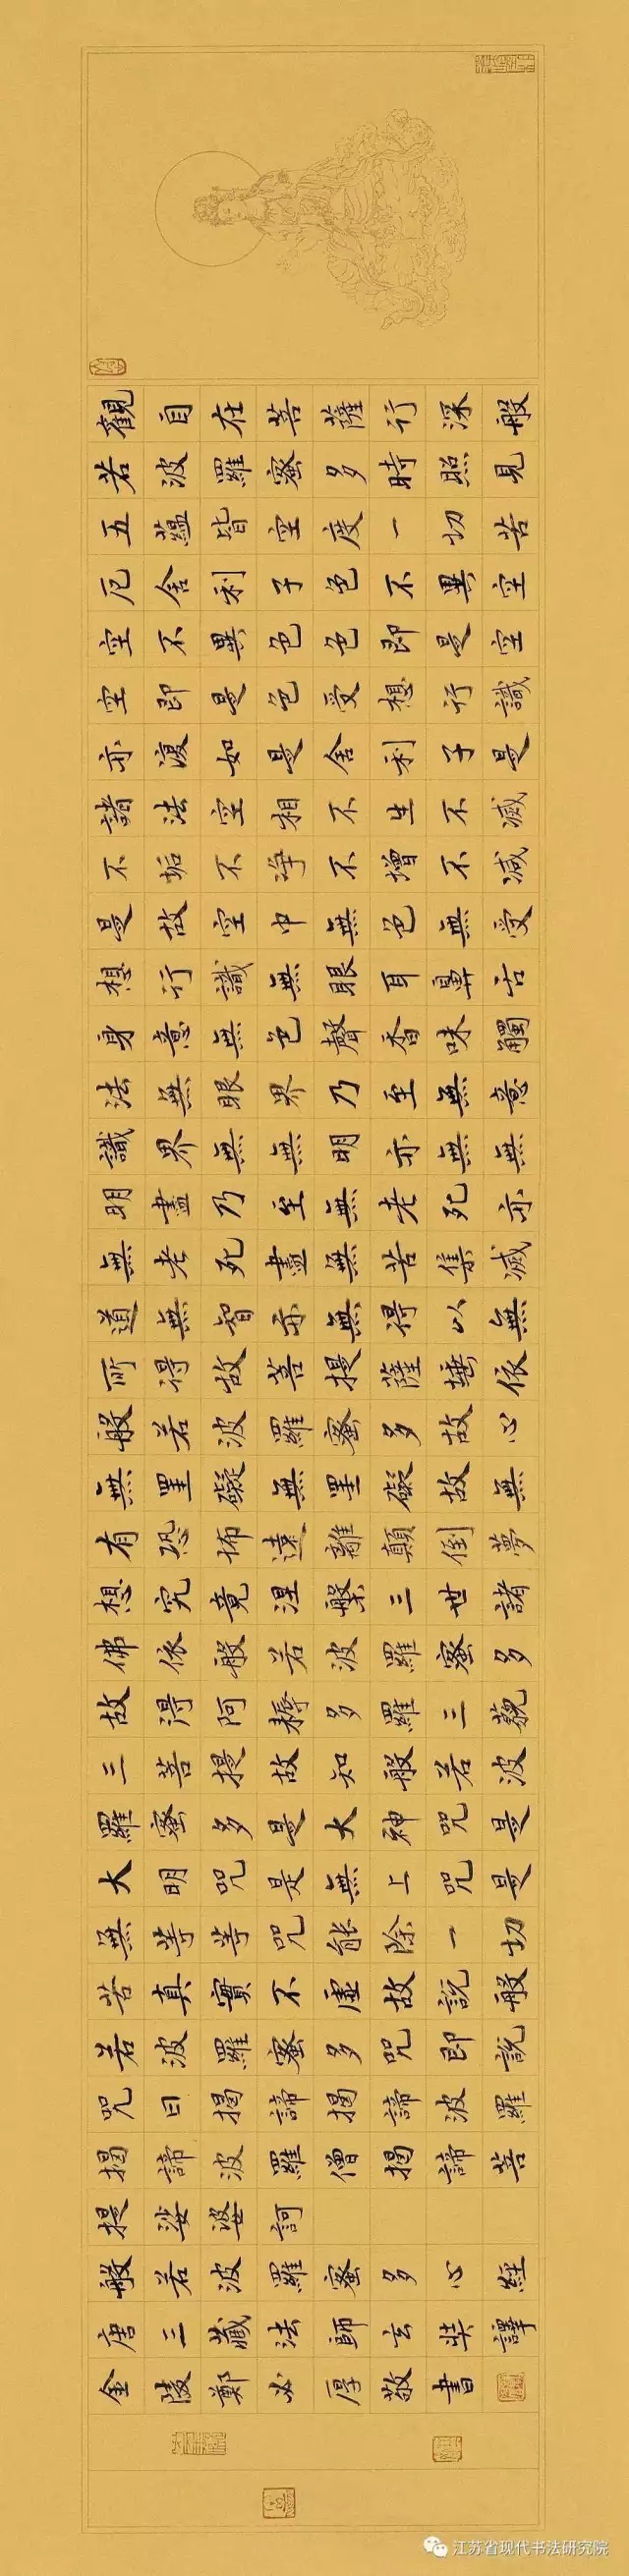 觀自在菩薩行深般
若波羅蜜多時照見
五蘊皆空度一切苦
厄舍利子色不異空
空不異色色即是空
空即是色受想行識
亦復如是舍利子是
諸法空相不生不滅
不垢不净不增不減
是故空中無色無受
想行識無眼耳鼻舌
身意無色聲香味觸
法無眼界乃至無意
識界無無明亦無無
明盡乃至無老死亦
無老死盡無苦集滅
道無智亦無得以無
所得故菩提薩埵依
般若波羅蜜多故心
無罣礙無罣礙故無
有恐怖遠離顛倒夢
想究竟涅槃三世諸
佛依般若波羅蜜多
故得阿耨多羅三藐
三菩提故知般若波
羅蜜多是大神咒是
大明咒是無上咒是
無等等咒能除一切
苦真實不虛故說般
若波羅蜜多咒即說
咒曰揭諦揭諦波羅
揭諦波羅僧揭諦菩
提娑婆訶
般若波羅蜜多心經
唐三藏法師玄奘譯
金陵鄭必厚敬書
江苏省现代书法研究院